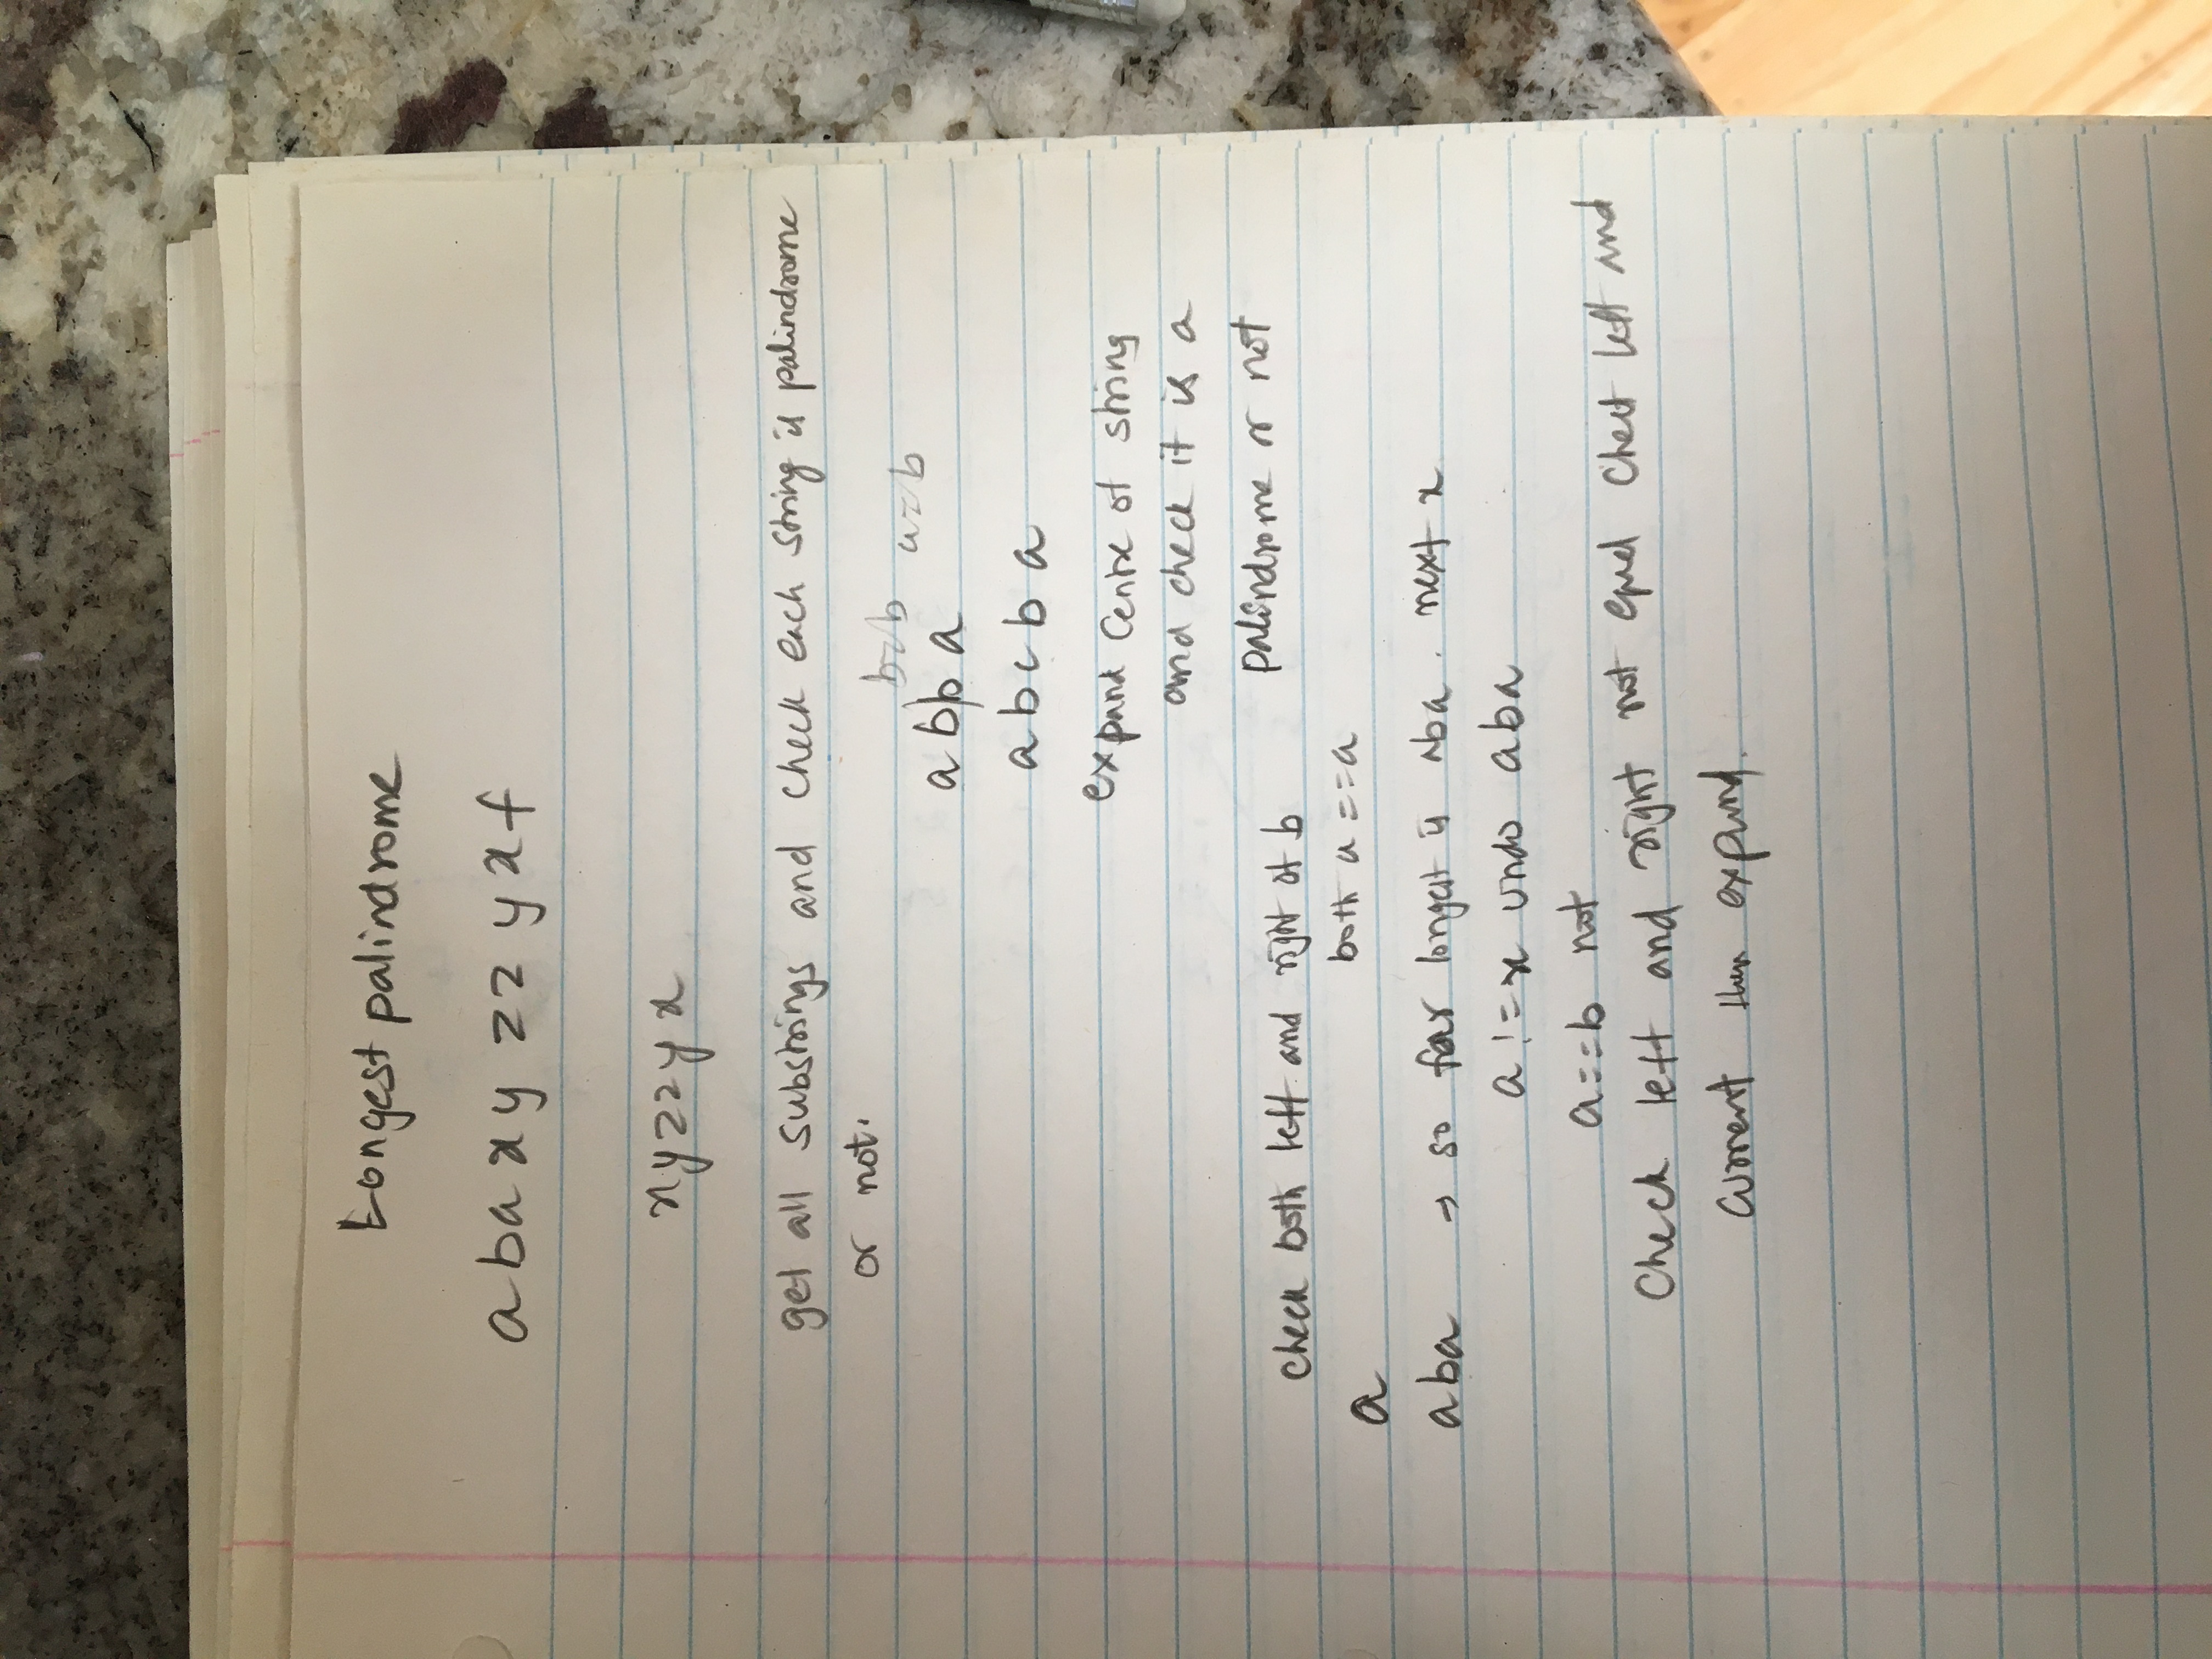 Longest palindrome
abaxy zz yxf
xyzzyx
get all substrings and check each string is palindrome
or not.
b=b a=b
a b|b a
a b c b a
expand centre of string
and check it is a
palindrome or not
check both left and right of b
both a ==a
a
aba → so far longest is aba. next x
a != x undo aba
a==b not
Check left and right not equal check left and
current then expand.